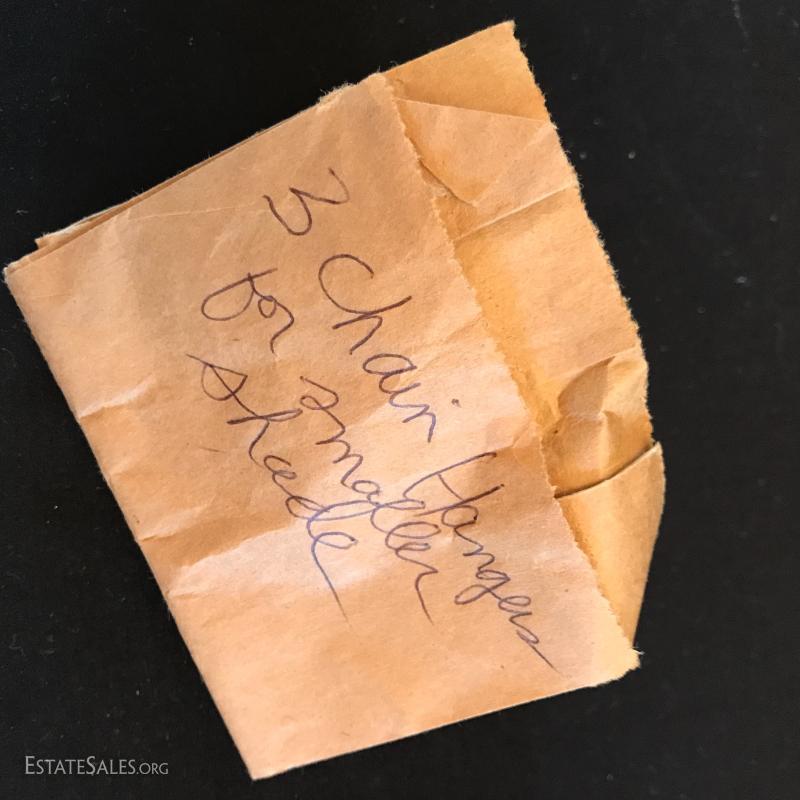 3 Chain Hangers
for smaller
shade
EstateSales.org